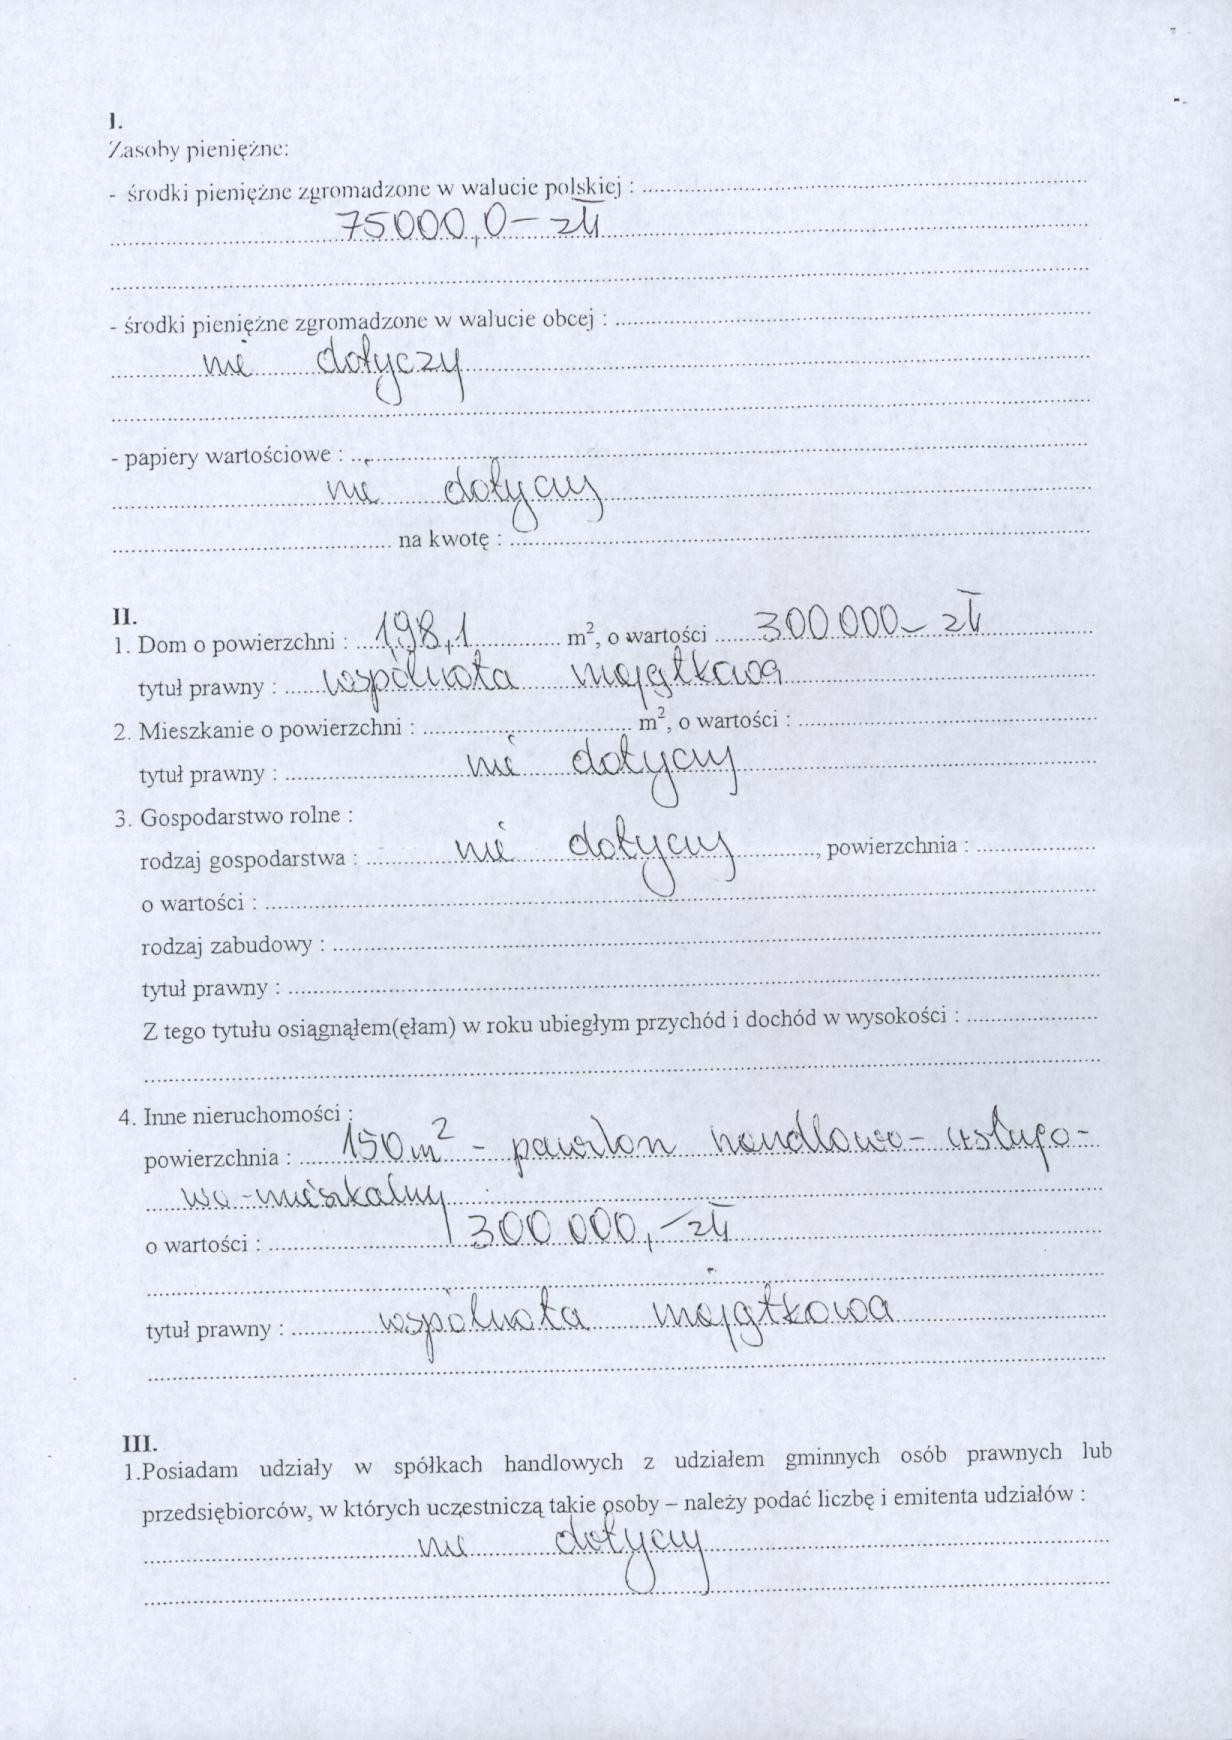 I.
Zasoby pieniężne:
- środki pieniężne zgromadzone w walucie polskiej : ..........
75000,0- zł
- środki pieniężne zgromadzone w walucie obcej : ..........
nie dotyczy
- papiery wartościowe : ..........
nie dotyczy
.......... na kwotę : ..........
II.
1. Dom o powierzchni : 198,1 m², o wartości 300 000- zł
tytuł prawny : wspólnota majątkowa
2. Mieszkanie o powierzchni : .......... m², o wartości : ..........
tytuł prawny : nie dotyczy
3. Gospodarstwo rolne :
rodzaj gospodarstwa : nie dotyczy, powierzchnia : ..........
o wartości : ..........
rodzaj zabudowy : ..........
tytuł prawny : ..........
Z tego tytułu osiągnąłem(ęłam) w roku ubiegłym przychód i dochód w wysokości : ..........
4. Inne nieruchomości :
powierzchnia : 150 m² - pawilon handlowo- usługo-
wo - mieszkalny
o wartości : 300 000,- zł
tytuł prawny : wspólnota majątkowa
III.
1.Posiadam udziały w spółkach handlowych z udziałem gminnych osób prawnych lub
przedsiębiorców, w których uczestniczą takie osoby – należy podać liczbę i emitenta udziałów :
nie dotyczy